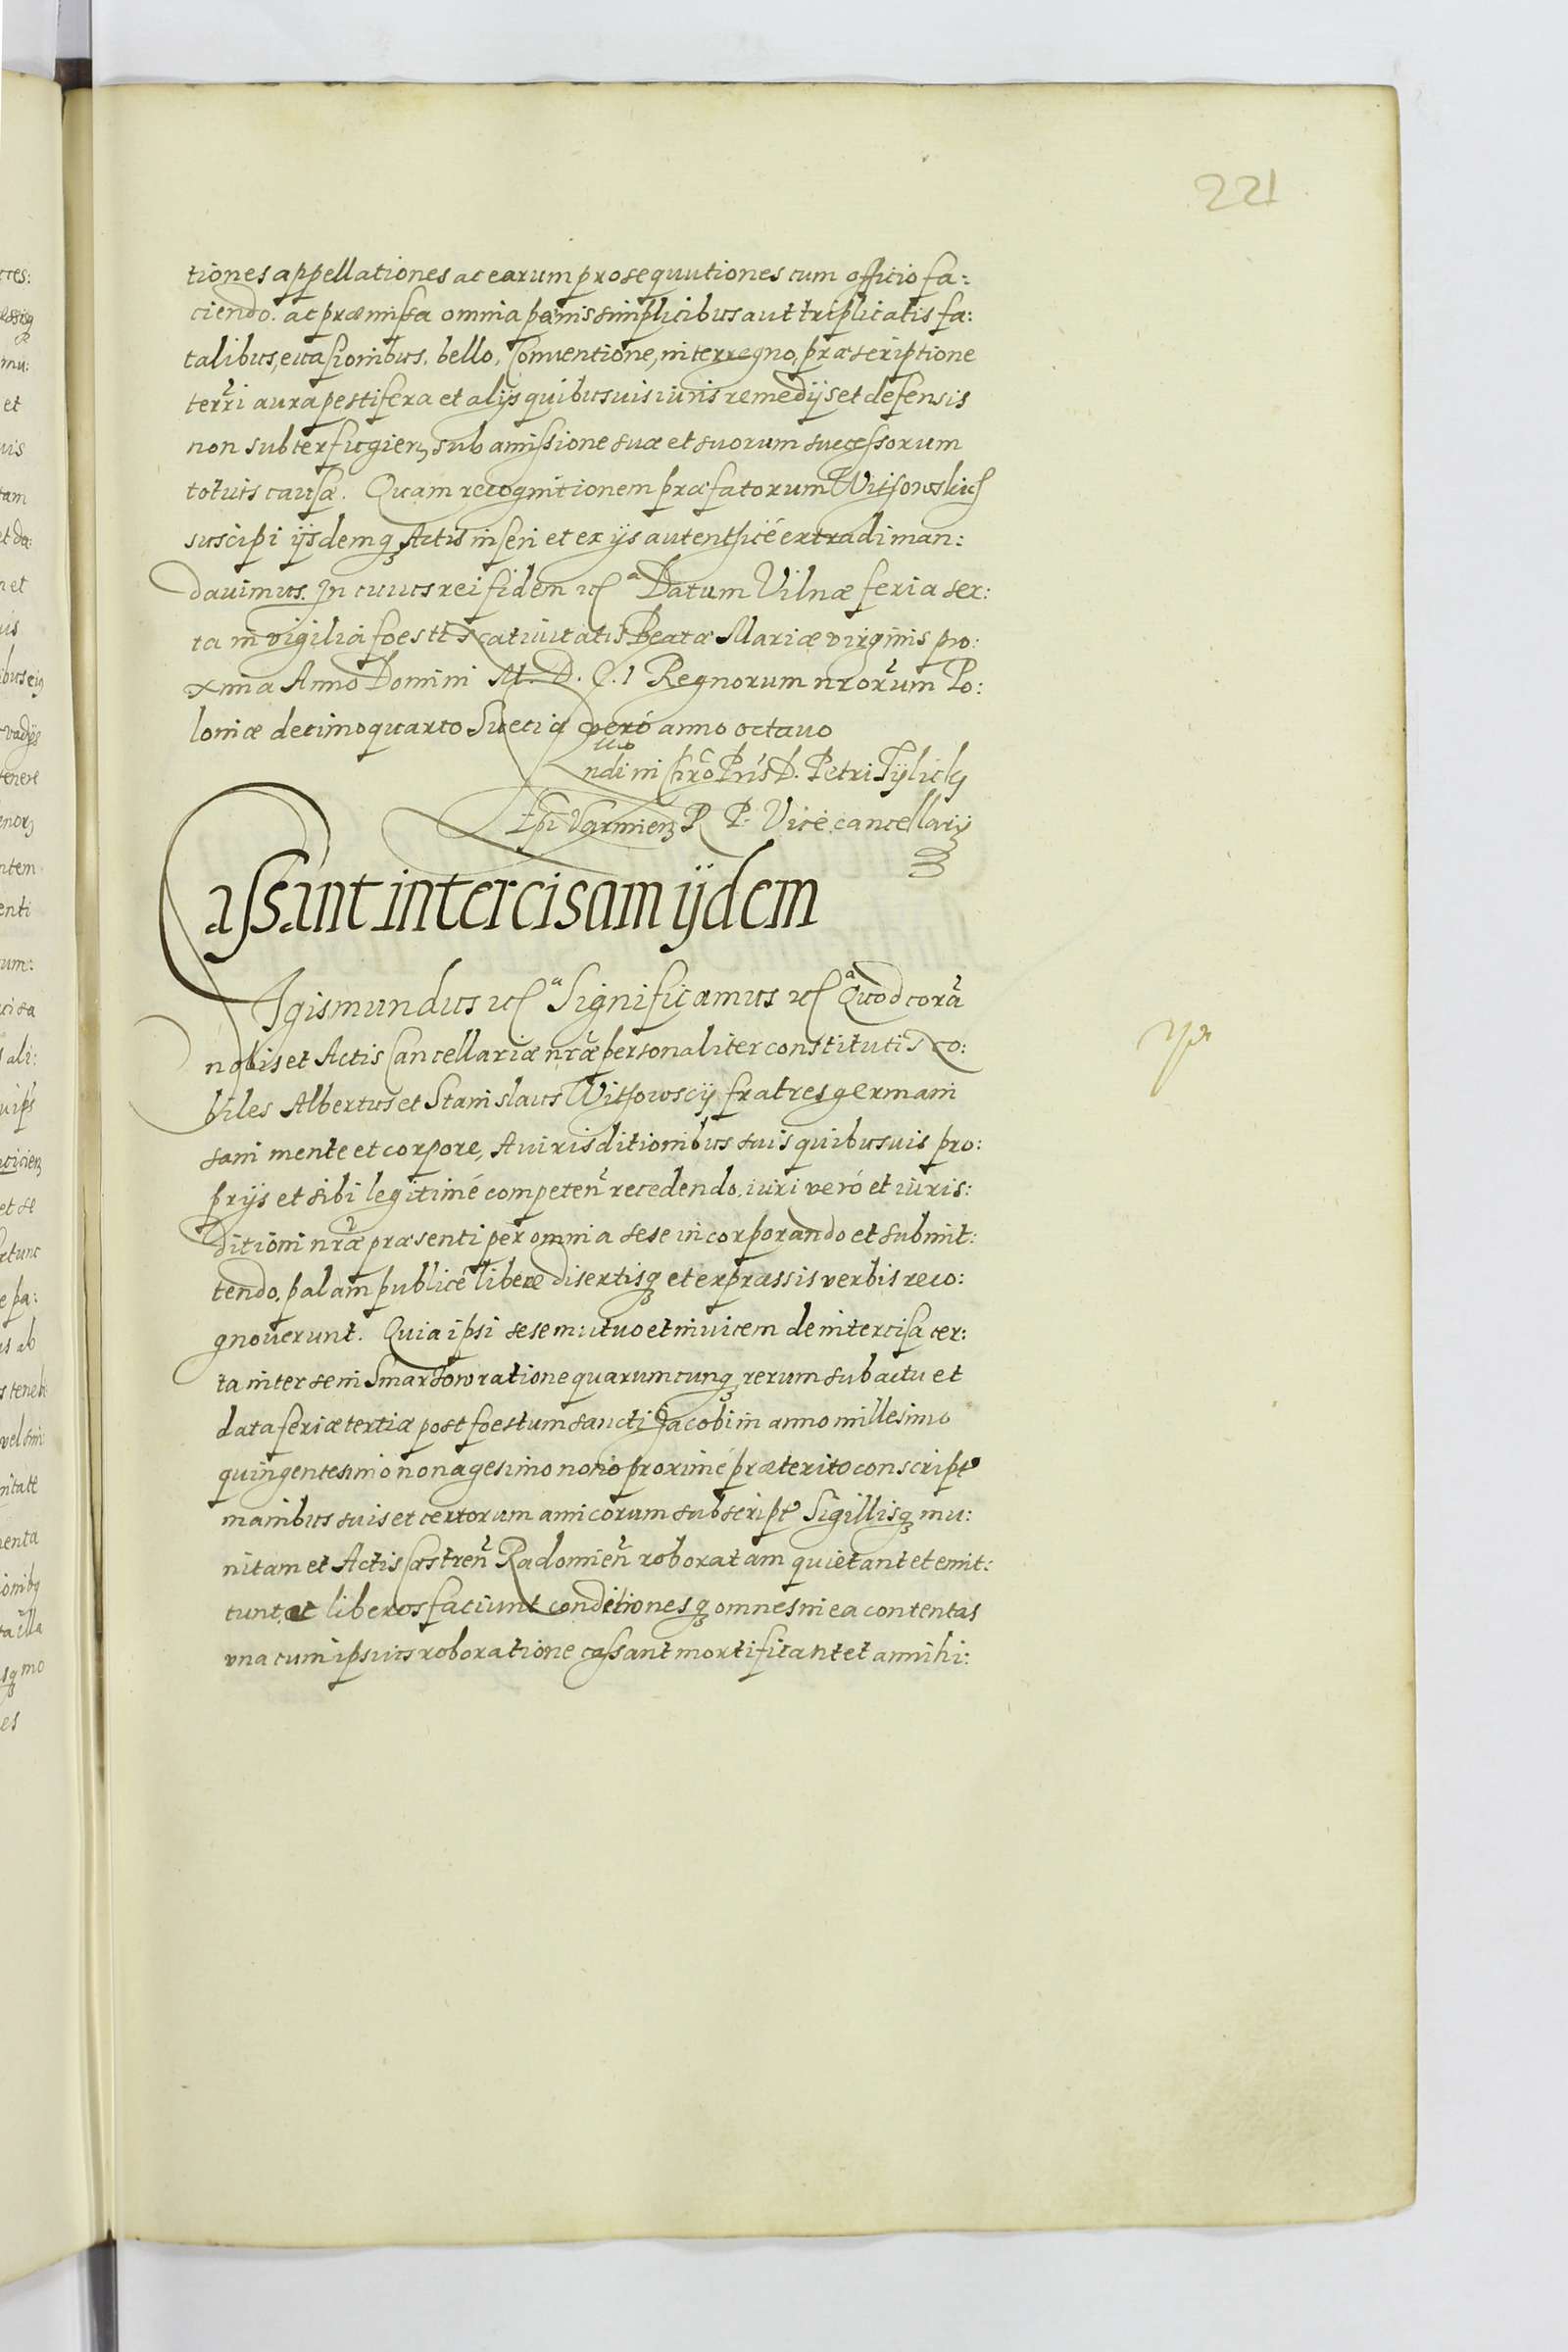 221
tiones appellationes ac earum prosequutiones cum officio fa:
ciendo. ac præmissa omnia pænis simplicibus aut triplicatis fa:
talibus, euasionibus, bello, Conuentione, interregno, præscriptione
terri aura pestifera et alijs quibusuis iuris remedijs et defensis
non subterfugien sub amissione suæ et suorum successorum
totius causæ. Quam recognitionem præfatorum Withowskich
suscipi ijsdemq Actis inseri et ex ijs autenthicé extradi man:
dauimus. In cuius rei fidem etc Datum Vilnæ feria sex:
ta in vigilia foesti Natiuitatis Beatæ Mariæ virginis pro:
xima Anno Domini M. D. C. I Regnorum nrorum Po:
loniæ decimoquarto Sueciæ veró anno octauo
Rndi in Chro Pris D. Petri Tylicky
Epi Varmien R P. Vicecancellarij
Cassant intercisam ijdem
Sigismundus etc Significamus etc Quod corã
nobis et Actis Cancellariæ nræ personaliter constituti No:
biles Albertus et Stanislaus Withowscij fratres germani
sani mente et corpore, A iurisditionibus suis quibusuis pro:
prijs et sibi legitimé competen recedendo, iuri veró et iuris:
ditioni nræ præsenti per omnia sese incorporando et submit:
tendo, palam publicé libere disertisq et expræssis verbis reco:
gnouerunt. Quia ipsi sese mutuo et inuicem de intercisa cer:
ta inter se in ratione quarumcunq rerum sub actu et
data feriæ tertiæ post foestum sancti Jacobi in anno millesimo
quingentesimo nonagesimo nono proximé præterito conscript
manibus suis et certorum amicorum subscript Sigillisq mu:
nitam et Actis Castren Radomien roboratam quietant et emit:
tunt, ac liberos faciunt conditionesq omnes in ea contentas
vna cum ipsius roboratione cassant mortificant et annihi: